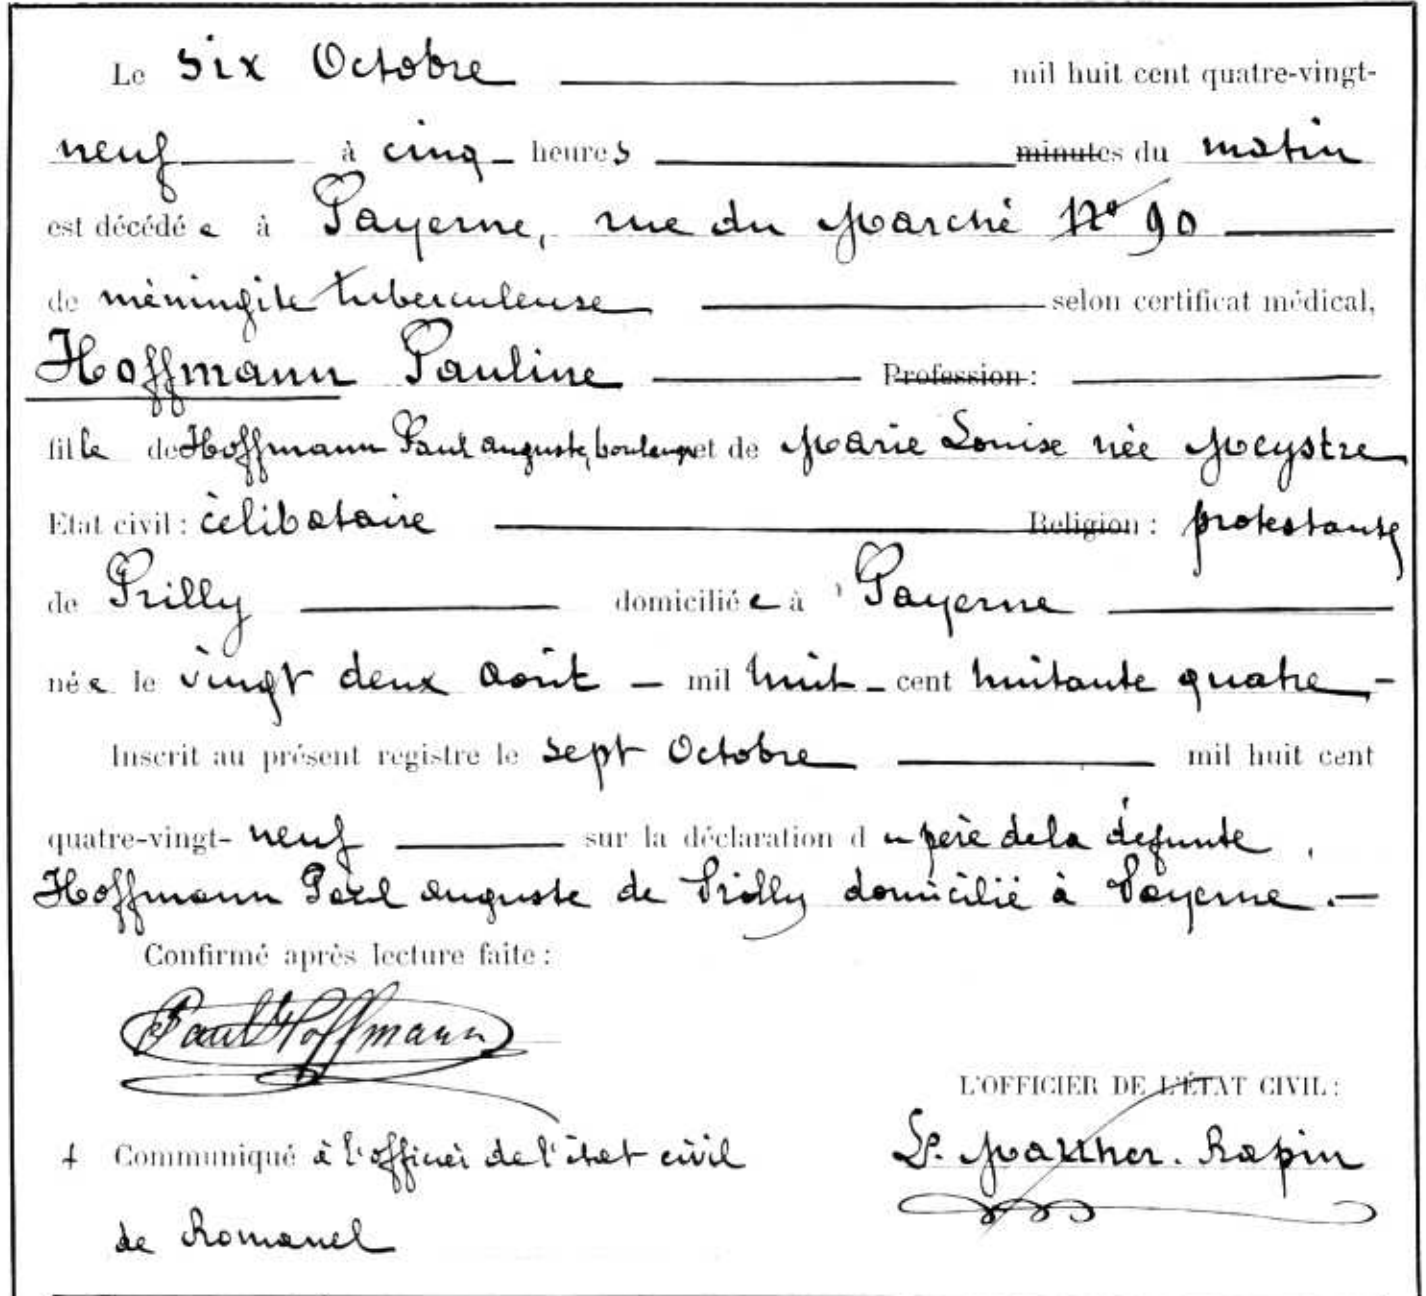 Le six Octobre mil huit cent quatre-vingt-
neuf à cinq heures minutes du matin
est décédée à Payerne, rue du Marché No 90
de méningite tuberculeuse selon certificat médical,
Hoffmann Pauline Profession :
fille de Hoffmann Paul auguste, boulanger et de Marie Louise née Meystre
Etat civil : célibataire Religion : protestante
de Prilly domiciliée à Payerne
née le vingt deux août mil huit cent huitante quatre
Inscrit au présent registre le sept Octobre mil huit cent
quatre-vingt- neuf sur la déclaration du père de la défunte,
Hoffmann Paul auguste de Prilly domicilié à Payerne.
Confirmé après lecture faite :
Paul Hoffmann
L'OFFICIER DE L'ÉTAT CIVIL :
Communiqué à l'officier de l'état civil
Rapin
de Romanel